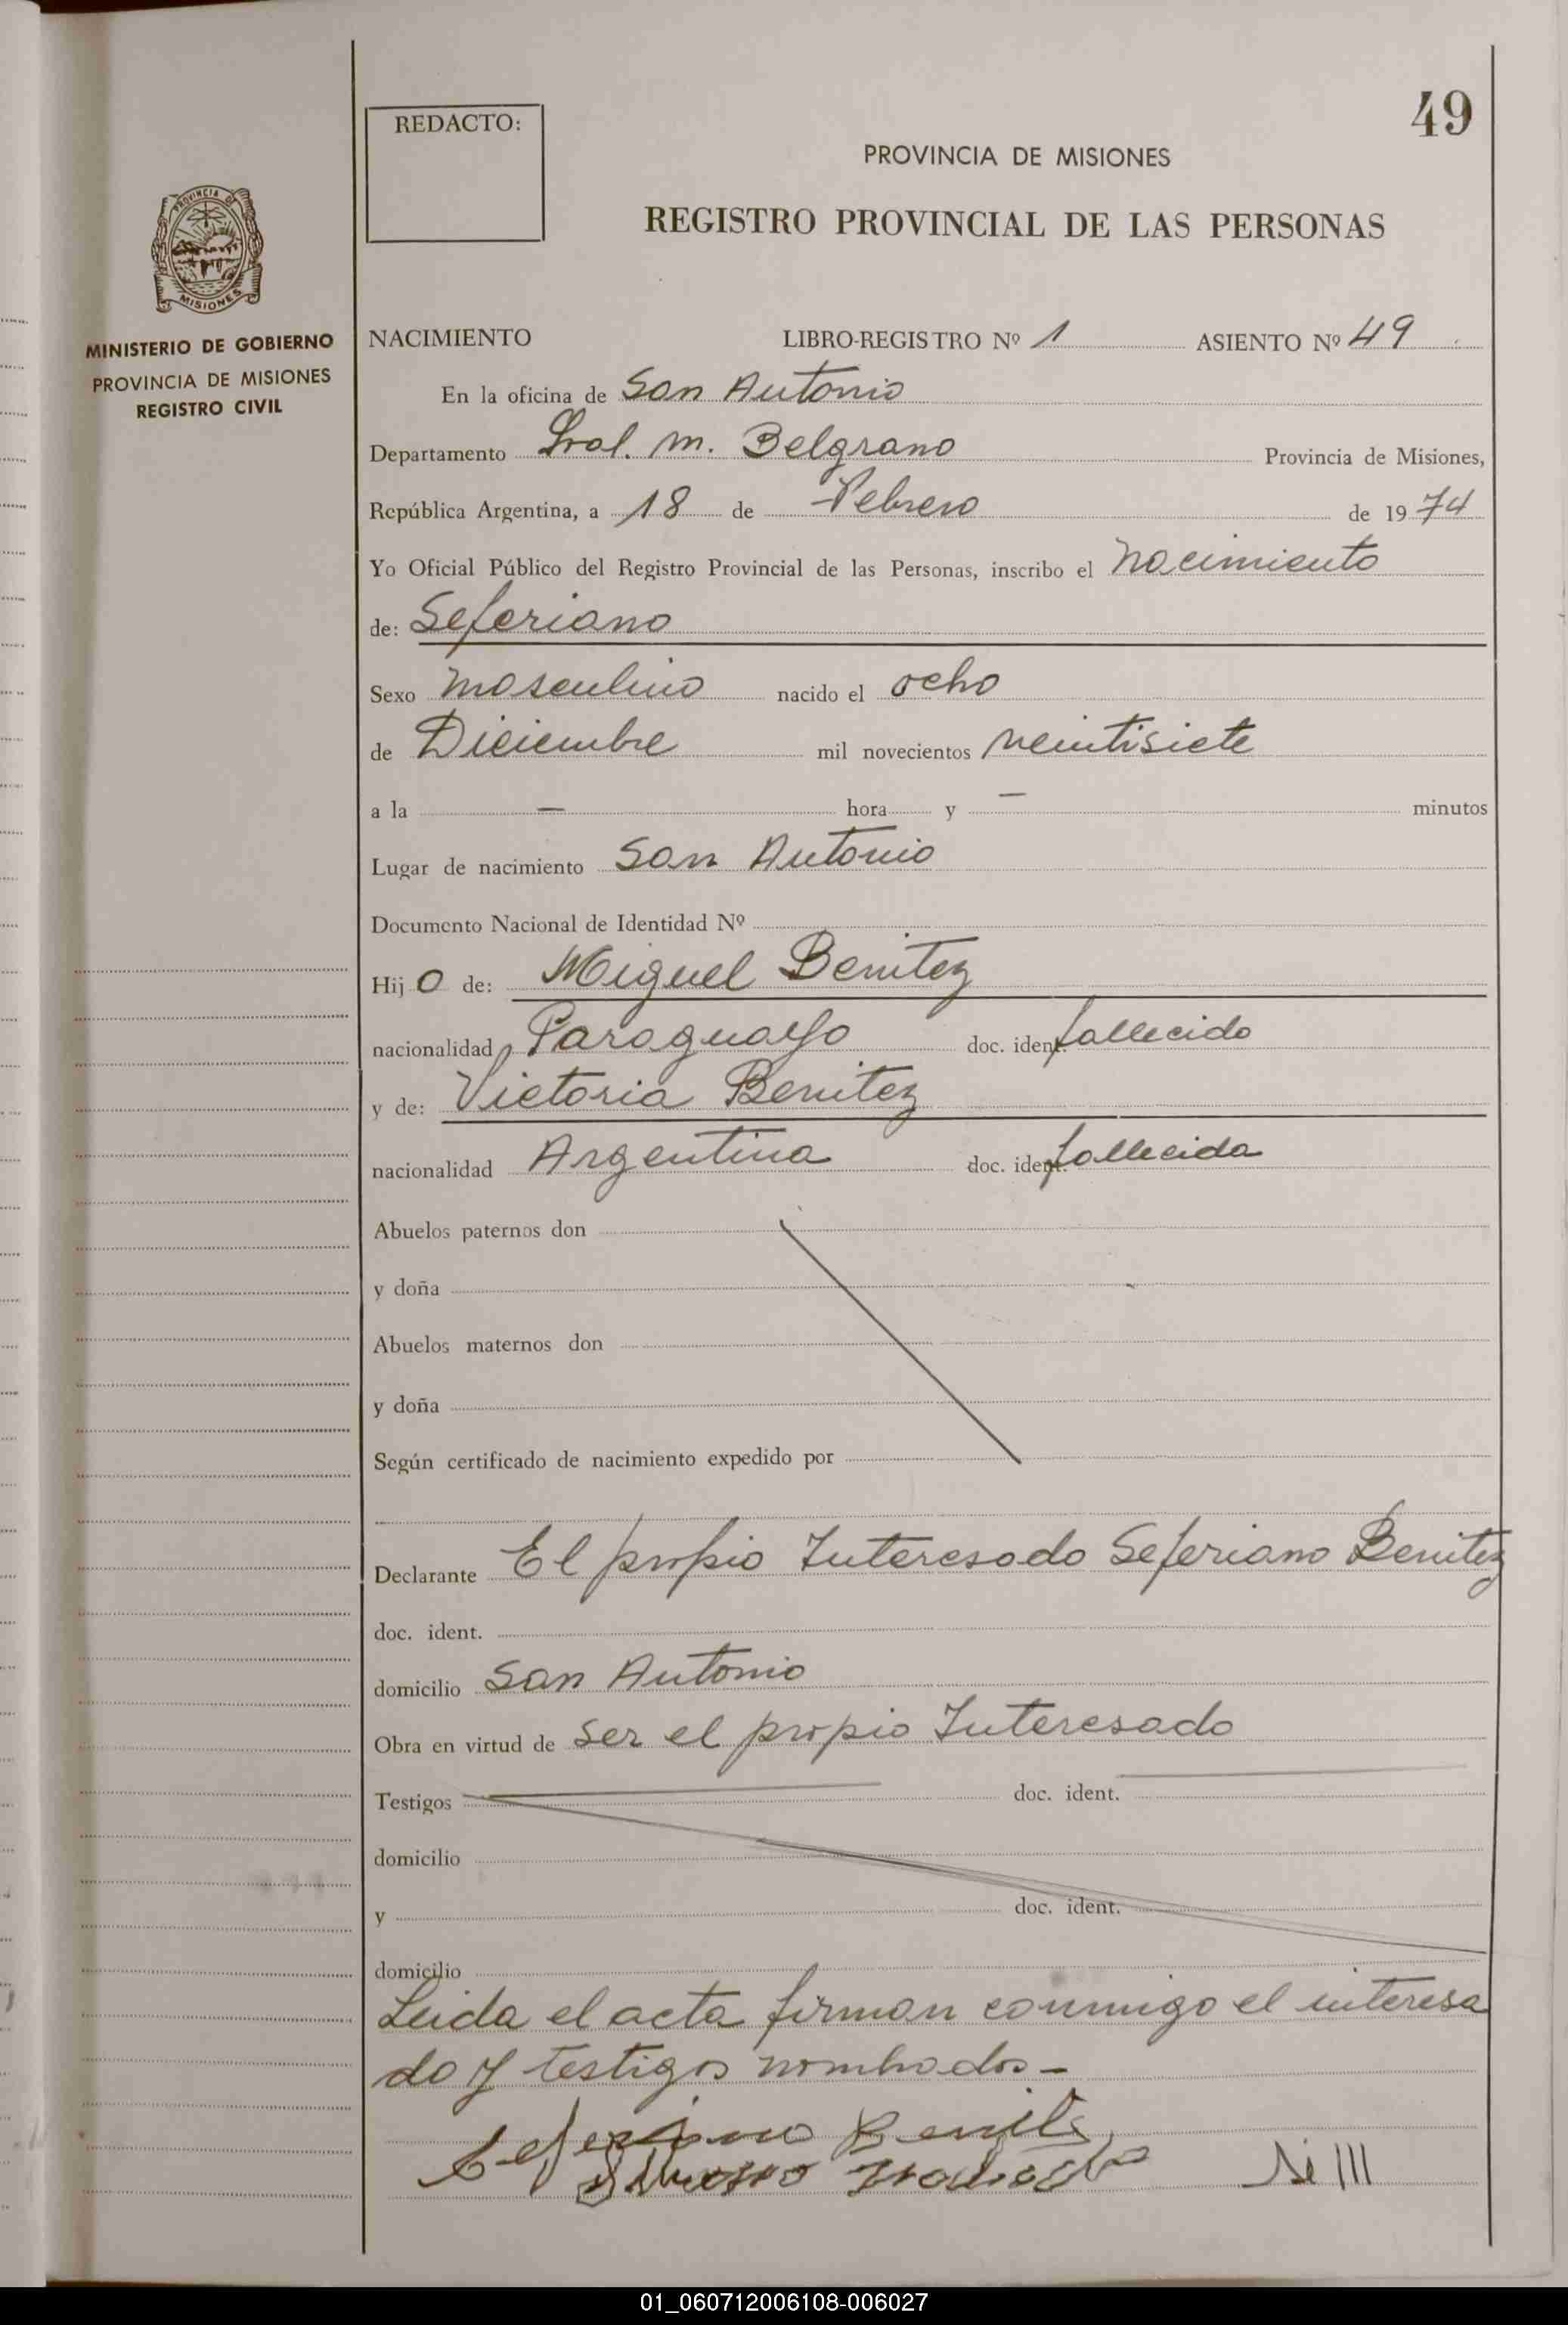 49
REDACTO:
PROVINCIA DE MISIONES
REGISTRO PROVINCIAL DE LAS PERSONAS
PROVINCIA DE
MISIONES
MINISTERIO DE GOBIERNO
PROVINCIA DE MISIONES
REGISTRO CIVIL
NACIMIENTO LIBRO-REGISTRO Nº 1 ASIENTO Nº 49
En la oficina de San Antonio
Departamento Gral. M. Belgrano Provincia de Misiones,
República Argentina, a 18 de Febrero de 1974
Yo Oficial Público del Registro Provincial de las Personas, inscribo el Nacimiento
de: Seferiano
Sexo Masculino nacido el ocho
de Diciembre mil novecientos veintisiete
a la — hora y — minutos
Lugar de nacimiento San Antonio
Documento Nacional de Identidad Nº
Hijo de: Miguel Benitez
nacionalidad Paraguayo doc. ident. fallecido
y de: Victoria Benitez
nacionalidad Argentina doc. ident. fallecida
Abuelos paternos don
y doña
Abuelos maternos don
y doña
Según certificado de nacimiento expedido por
Declarante El propio Interesado Seferiano Benitez
doc. ident.
domicilio San Antonio
Obra en virtud de ser el propio Interesado
Testigos doc. ident.
domicilio
y doc. ident.
domicilio
Leida el acta firman conmigo el interesa
do y testigos nombados -
01_060712006108-006027